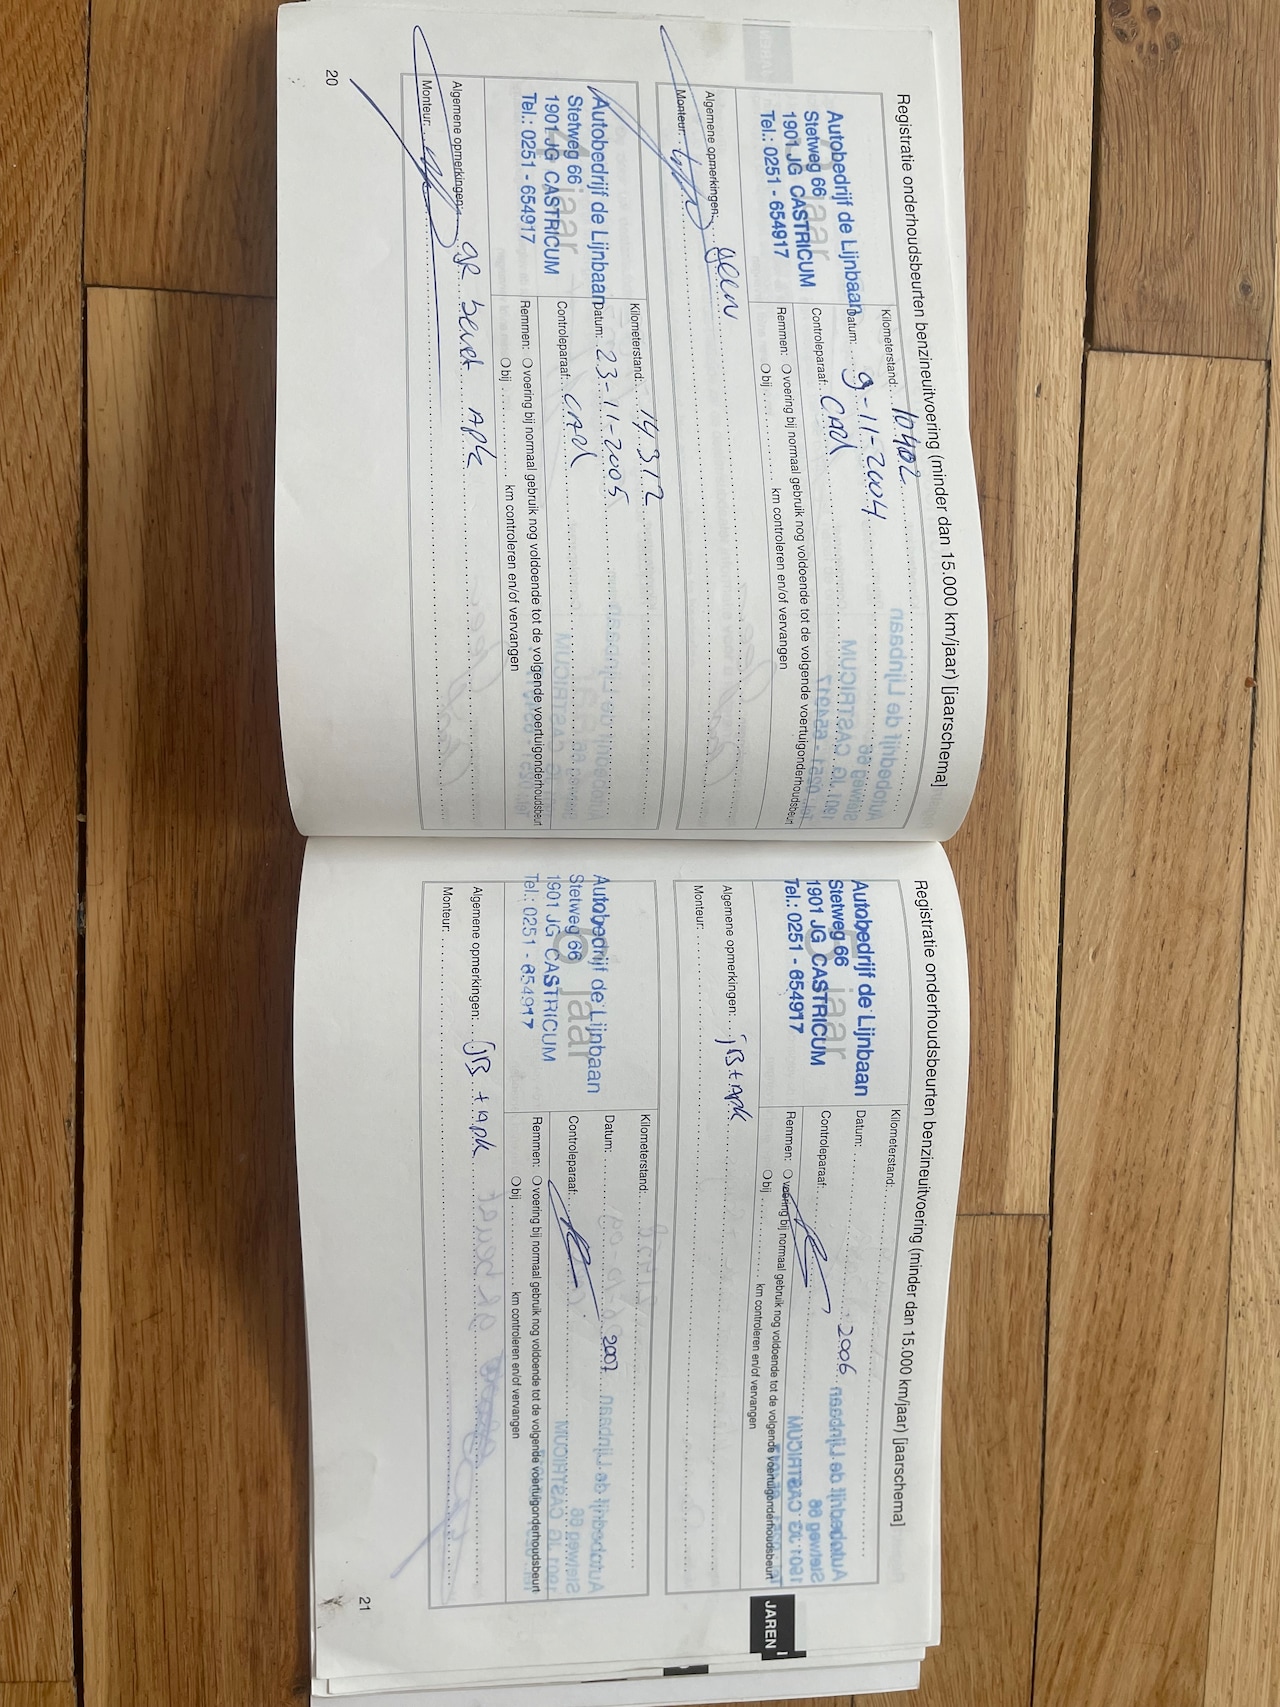 Registratie onderhoudsbeurten benzineuitvoering (minder dan 15.000 km/jaar) [jaarschema]
3 jaar
Autobedrijf de Lijnbaan
Stetweg 66
1901 JG CASTRICUM
Tel.: 0251 - 654917
Kilometerstand: 10402
Datum: 9-11-2004
Controleparaaf:
Remmen: voering bij normaal gebruik nog voldoende tot de volgende voertuigonderhoudsbeurt
bij km controleren en/of vervangen
Algemene opmerkingen: geen
Monteur:
4 jaar
Autobedrijf de Lijnbaan
Stetweg 66
1901 JG CASTRICUM
Tel.: 0251 - 654917
Kilometerstand: 14312
Datum: 23-11-2005
Controleparaaf:
Remmen: voering bij normaal gebruik nog voldoende tot de volgende voertuigonderhoudsbeurt
bij km controleren en/of vervangen
Algemene opmerkingen: gr beurt APK
Monteur:
20
Registratie onderhoudsbeurten benzineuitvoering (minder dan 15.000 km/jaar) [jaarschema]
5 jaar
Autobedrijf de Lijnbaan
Stetweg 66
1901 JG CASTRICUM
Tel.: 0251 - 654917
Kilometerstand:
Datum: 2006
Controleparaaf:
Remmen: voering bij normaal gebruik nog voldoende tot de volgende voertuigonderhoudsbeurt
bij km controleren en/of vervangen
Algemene opmerkingen: jB + APK
Monteur:
6 jaar
Autobedrijf de Lijnbaan
Stetweg 66
1901 JG CASTRICUM
Tel.: 0251 - 654917
Kilometerstand:
Datum: 2007
Controleparaaf:
Remmen: voering bij normaal gebruik nog voldoende tot de volgende voertuigonderhoudsbeurt
bij km controleren en/of vervangen
Algemene opmerkingen: jB + apk
Monteur:
JAREN
21